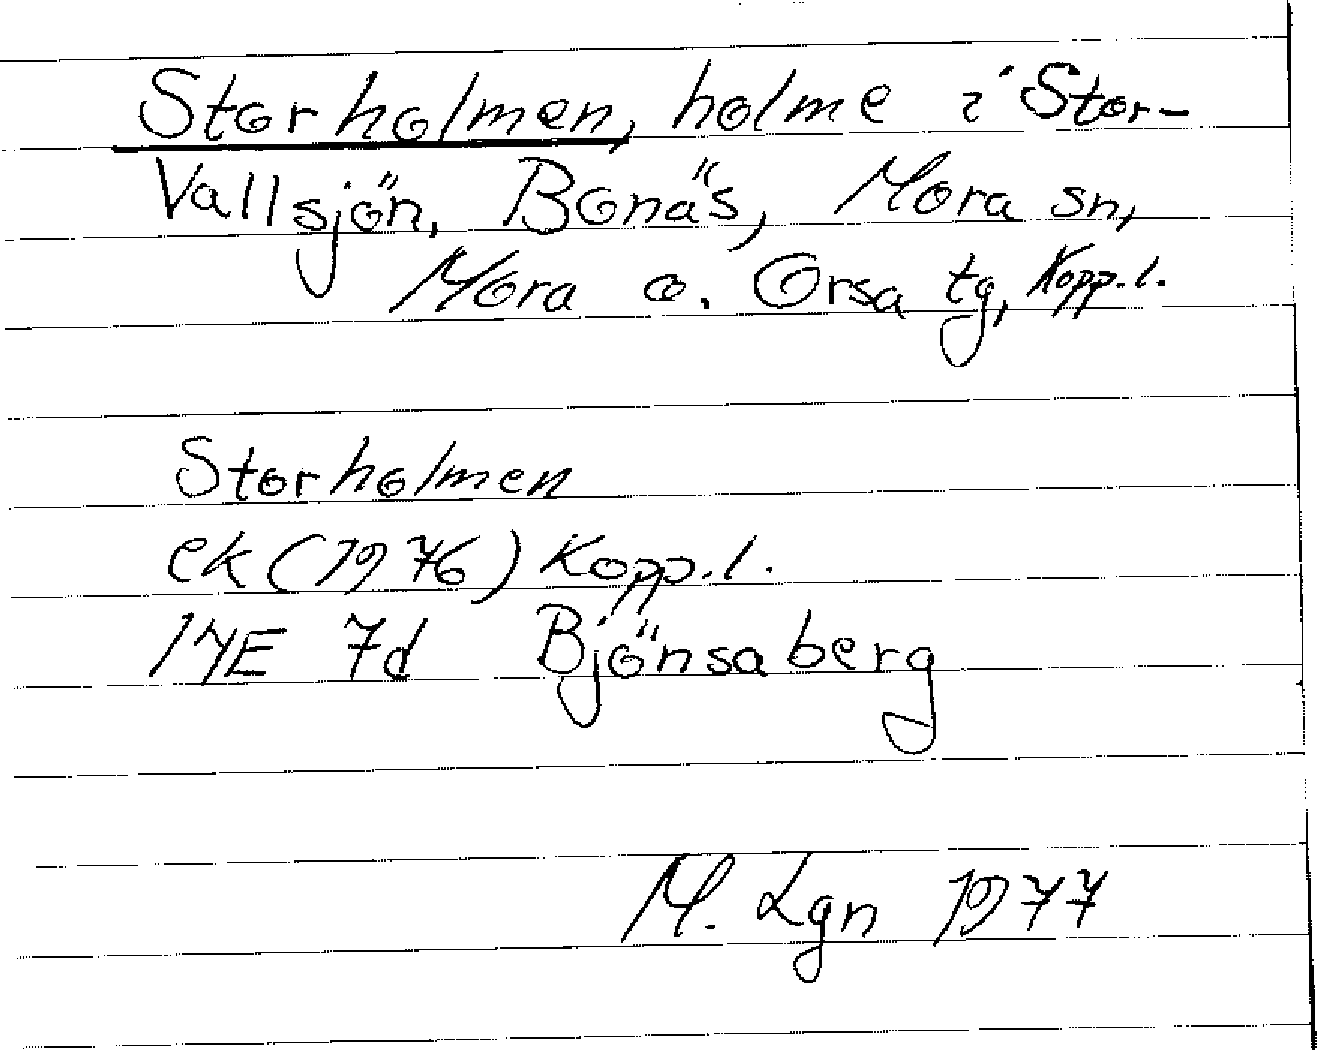 Storholmen, holme i Stor-
Vallsjön, Bonäs, Mora sn,
Mora o. Orsa tg, Kopp.l.
Storholmen
ek (1976) Kopp.l.
14E 7d Bjönsaberg
M. Lgn 1977